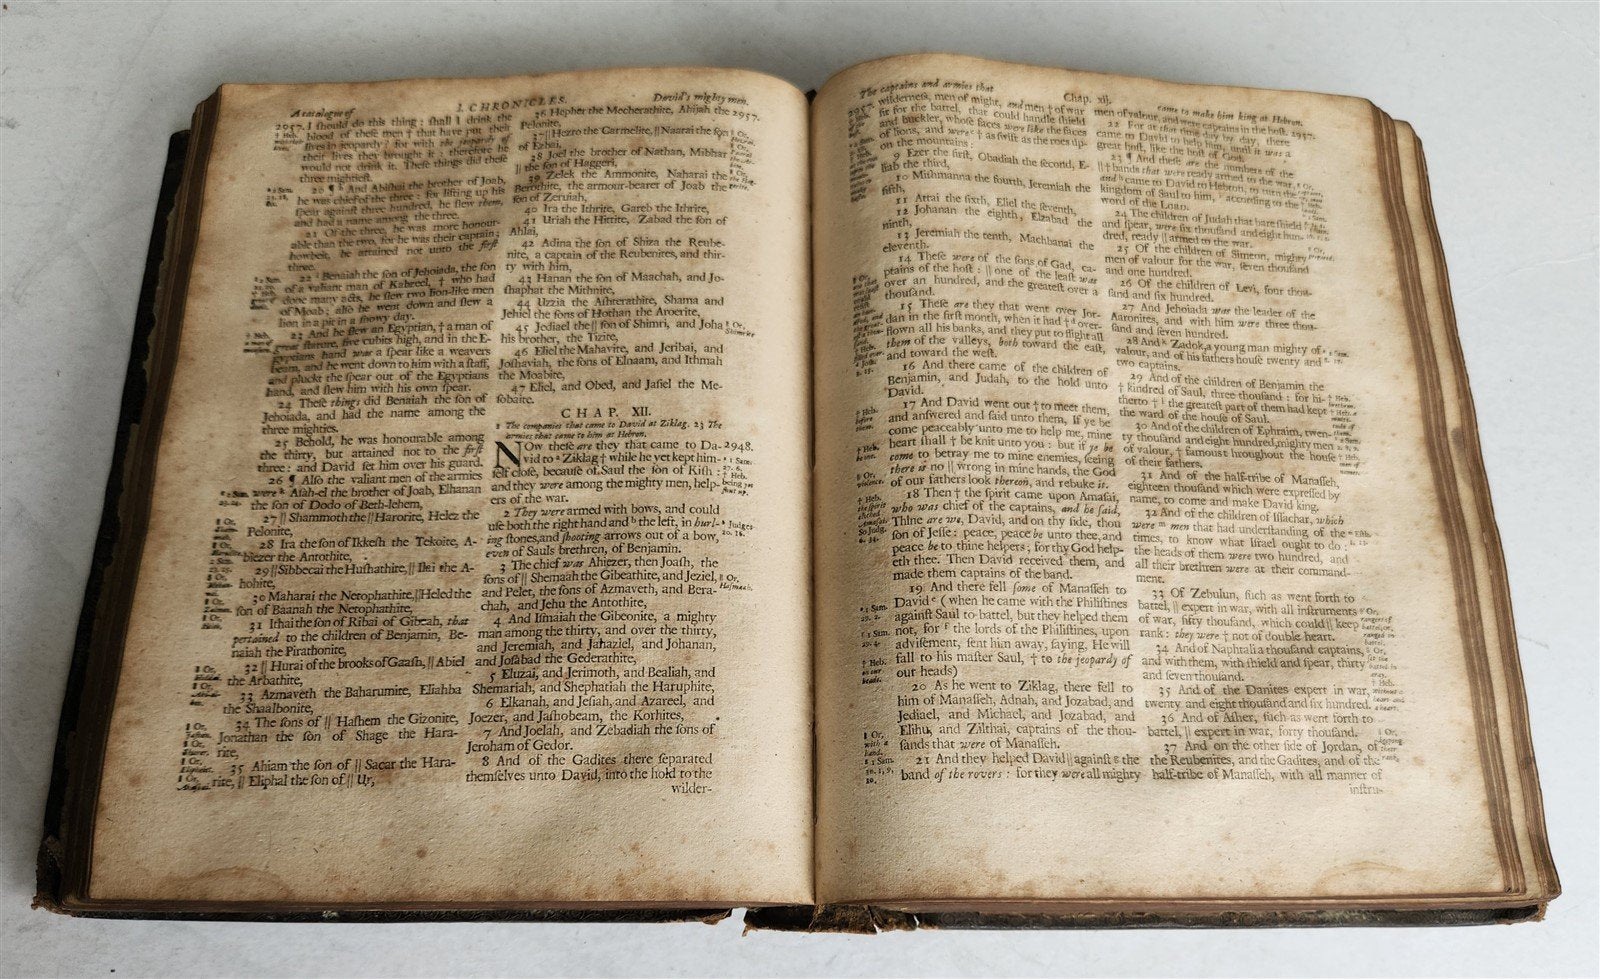 A catalogue of
I. CHRONICLES.
David's mighty men.
2957. I should do this thing: shall I drink the
blood of these men † that have put their
lives in jeopardy? for with the jeopardy of
their lives they brought it: therefore he
would not drink it. These things did these
three mightiest.
20 ¶ And Abishai the brother of Joab,
he was chief of the three: for lifting up his
spear against three hundred, he slew them,
and had a name among the three.
21 Of the three, he was more honour-
able than the two, for he was their captain;
howbeit, he attained not unto the first
three.
22 Benaiah the son of Jehoiada, the son
of a valiant man of Kabzeel, † who had
done many acts, he slew two lion-like men
of Moab; also he went down and slew a
lion in a pit in a snowy day.
23 And he slew an Egyptian, † a man of
great stature, five cubits high, and in the E-
gyptians hand was a spear like a weavers
beam, and he went down to him with a staff,
and pluckt the spear out of the Egyptians
hand, and slew him with his own spear.
24 These things did Benaiah the son of
Jehoiada, and had the name among the
three mighties.
25 Behold, he was honourable among
the thirty, but attained not to the first
three: and David set him over his guard.
26 ¶ Also the valiant men of the armies
were Asah-el the brother of Joab, Elhanan
the son of Dodo of Beth-lehem,
27 || Shammoth the || Harorite, Helez the
Pelonite,
28 Ira the son of Ikkesh the Tekoite, A-
biezer the Antothite,
29 || Sibbecai the Hushathite, || Ilai the A-
hohite,
30 Maharai the Netophathite, || Heled the
son of Baanah the Netophathite,
31 Ithai the son of Ribai of Gibeah, that
pertained to the children of Benjamin, Be-
naiah the Pirathonite,
32 || Hurai of the brooks of Gaash, || Abiel
the Arbathite,
33 Azmaveth the Baharumite, Eliahba
the Shaalbonite,
34 The sons of || Hashem the Gizonite,
Jonathan the son of Shage the Hara-
rite,
35 Ahiam the son of || Sacar the Hara-
rite, || Eliphal the son of || Ur,
36 Hepher the Mecherathite, Ahijah the 2957.
Pelonite,
37 || Hezro the Carmelite, || Naarai the son
of Ezbai,
38 Joel the brother of Nathan, Mibhar
|| the son of Haggeri,
39 Zelek the Ammonite, Naharai the
Berothite, the armour-bearer of Joab the
son of Zeruiah,
40 Ira the Ithrite, Gareb the Ithrite,
41 Uriah the Hittite, Zabad the son of
Ahlai,
42 Adina the son of Shiza the Reube-
nite, a captain of the Reubenites, and thir-
ty with him,
43 Hanan the son of Maachah, and Jo-
shaphat the Mithnite,
44 Uzzia the Ashterathite, Shama and
Jehiel the sons of Hothan the Aroerite,
45 Jediael the || son of Shimri, and Joha
his brother, the Tizite,
46 Eliel the Mahavite, and Jeribai, and
Joshaviah, the sons of Elnaam, and Ithmah
the Moabite,
47 Eliel, and Obed, and Jasiel the Me-
sobaite.
CHAP. XII.
1 The companies that came to David at Ziklag. 23 The
armies that came to him at Hebron.
NOw these are they that came to Da- 2948.
vid to Ziklag † while he yet kept him-
self close, because of Saul the son of Kish:
and they were among the mighty men, help-
ers of the war.
2 They were armed with bows, and could
use both the right hand and the left, in hurl-
ing stones, and shooting arrows out of a bow,
even of Sauls brethren, of Benjamin.
3 The chief was Ahiezer, then Joash, the
sons of || Shemaah the Gibeathite, and Jeziel,
and Pelet, the sons of Azmaveth, and Bera-
chah, and Jehu the Antothite,
4 And Ismaiah the Gibeonite, a mighty
man among the thirty, and over the thirty,
and Jeremiah, and Jahaziel, and Johanan,
and Josabad the Gederathite,
5 Eluzai, and Jerimoth, and Bealiah, and
Shemariah, and Shephatiah the Haruphite,
6 Elkanah, and Jesiah, and Azareel, and
Joezer, and Jashobeam, the Korhites,
7 And Joelah, and Zebadiah the sons of
Jeroham of Gedor.
8 And of the Gadites there separated
themselves unto David, into the hold to the
wilder-
The captains and armies that
Chap. xij.
came to make him king at Hebron.
2957. wilderness, men of might, and men † of war
fit for the battel, that could handle shield
and buckler, whose faces were like the faces
of lions, and were † as swift as the roes up-
on the mountains:
9 Ezer the first, Obadiah the second, E-
liab the third,
10 Mishmanna the fourth, Jeremiah the
fifth,
11 Attai the sixth, Eliel the seventh,
12 Johanan the eighth, Elzabad the
ninth,
13 Jeremiah the tenth, Machbanai the
eleventh.
14 These were of the sons of Gad, ca-
ptains of the host: || one of the least was
over an hundred, and the greatest over a
thousand.
15 These are they that went over Jor-
dan in the first month, when it had † over-
flown all his banks, and they put to flight all
them of the valleys, both toward the east,
and toward the west.
16 And there came of the children of
Benjamin, and Judah, to the hold unto
David.
17 And David went out † to meet them,
and answered and said unto them, If ye be
come peaceably unto me to help me, mine
heart shall † be knit unto you: but if ye be
come to betray me to mine enemies, seeing
there is no || wrong in mine hands, the God
of our fathers look thereon, and rebuke it.
18 Then † the spirit came upon Amasai,
who was chief of the captains, and he said,
Thine are we, David, and on thy side, thou
son of Jesse: peace, peace be unto thee, and
peace be to thine helpers; for thy God help-
eth thee. Then David received them, and
made them captains of the band.
19 And there fell some of Manasseh to
David (when he came with the Philistines
against Saul to battel, but they helped them
not, for the lords of the Philistines, upon
advisement, sent him away, saying, He will
fall to his master Saul, † to the jeopardy of
our heads)
20 As he went to Ziklag, there fell to
him of Manasseh, Adnah, and Jozabad, and
Jediael, and Michael, and Jozabad, and
Elihu, and Zilthai, captains of the thou-
sands that were of Manasseh.
21 And they helped David || against the
band of the rovers: for they were all mighty
men of valour, and were captains in the host. 2957.
22 For at that time day by day, there
came to David to help him, until it was a
great host, like the host of God.
23 ¶ And these are the numbers of the
|| † bands that were ready armed to the war,
and came to David to Hebron, to turn the
kingdom of Saul to him, according to the
word of the LORD.
24 The children of Judah that bare shield
and spear, were six thousand and eight hun-
dred, ready || armed to the war.
25 Of the children of Simeon, mighty
men of valour for the war, seven thousand
and one hundred.
26 Of the children of Levi, four thou-
sand and six hundred.
27 And Jehoiada was the leader of the
Aaronites, and with him were three thou-
sand and seven hundred.
28 And Zadok, a young man mighty of
valour, and of his fathers house twenty and
two captains.
29 And of the children of Benjamin the
† kindred of Saul, three thousand: for hi-
therto † the greatest part of them had kept
the ward of the house of Saul.
30 And of the children of Ephraim, twen-
ty thousand and eight hundred, mighty men
of valour, † famous throughout the house
of their fathers.
31 And of the half-tribe of Manasseh,
eighteen thousand which were expressed by
name, to come and make David king.
32 And of the children of Issachar, which
were men that had understanding of the
times, to know what Israel ought to do:
the heads of them were two hundred, and
all their brethren were at their command-
ment.
33 Of Zebulun, such as went forth to
battel, || expert in war, with all instruments
of war, fifty thousand, which could || keep
rank: they were † not of double heart.
34 And of Naphtali a thousand captains,
and with them, with shield and spear, thirty
and seven thousand.
35 And of the Danites expert in war,
twenty and eight thousand and six hundred.
36 And of Asher, such as went forth to
battel, || expert in war, forty thousand.
37 And on the other side of Jordan, of
the Reubenites, and the Gadites, and of the
half-tribe of Manasseh, with all manner of
instru-